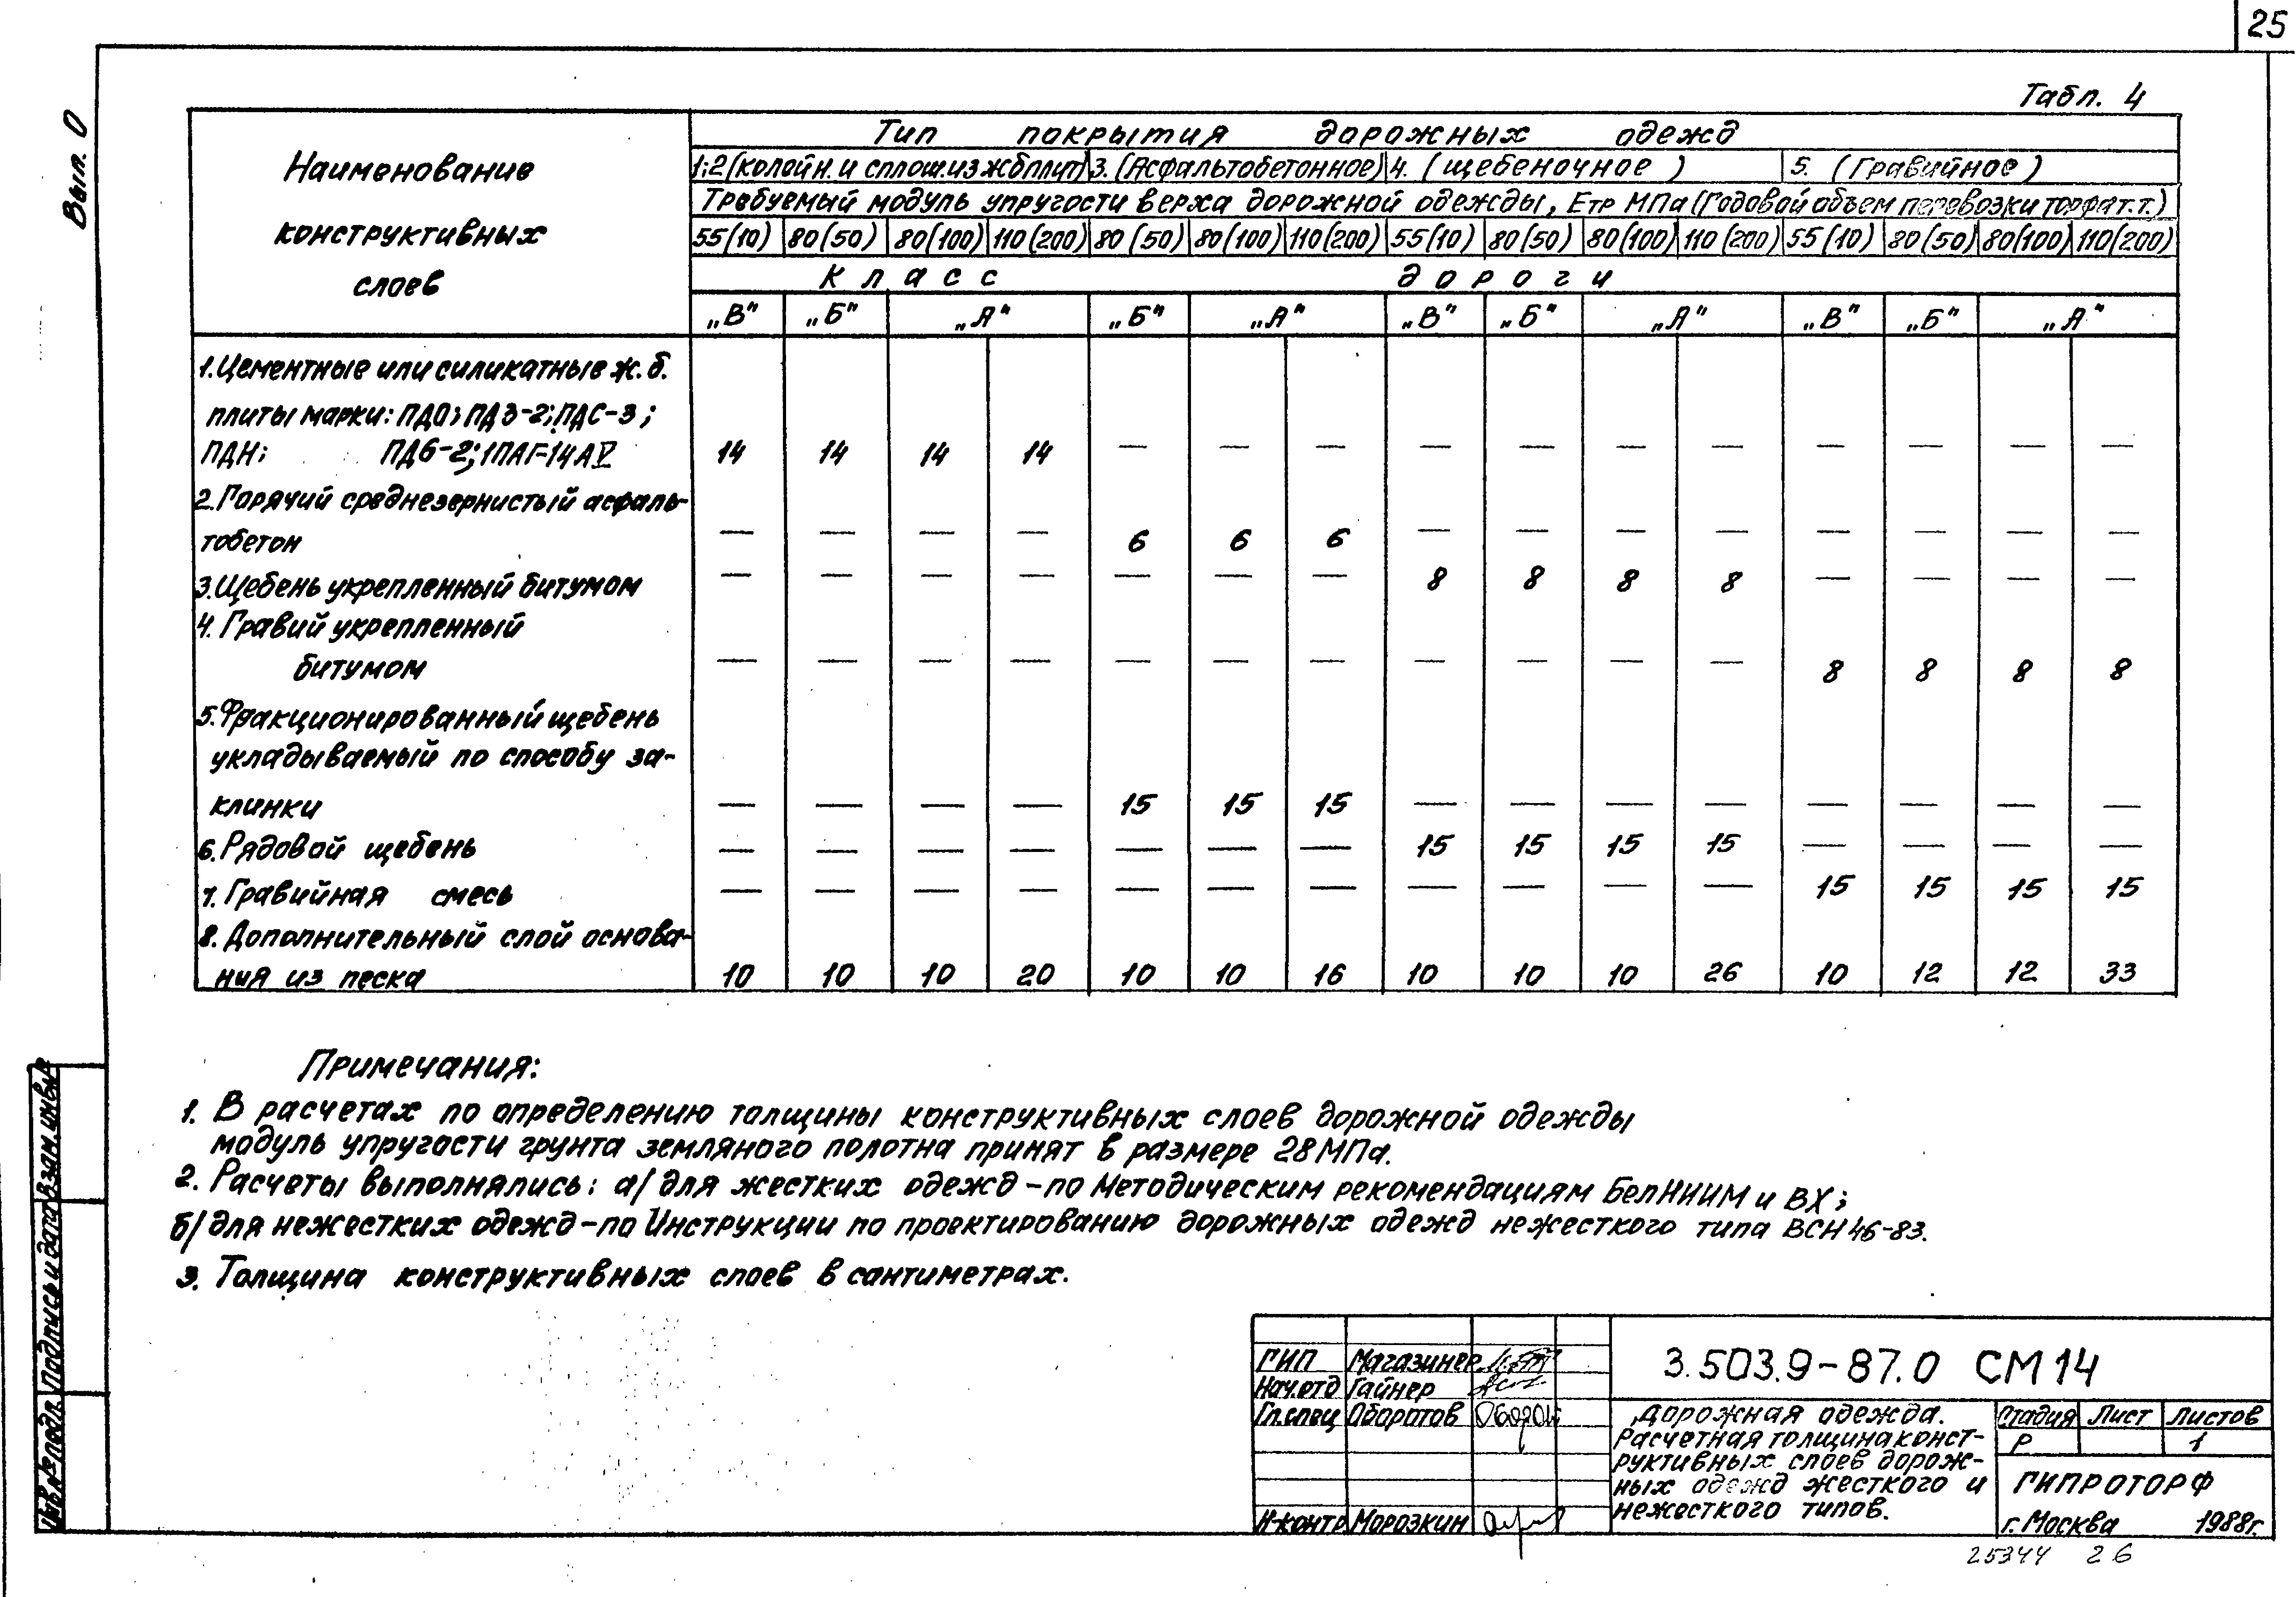 25
Вып. 0
Табл. 4
Наименование конструктивных слоев
Тип покрытия дорожных одежд
1;2 (колейн. и сплош. из жб плит) 3. (Асфальтобетонное) 4. (щебеночное) 5. (Гравийное)
Требуемый модуль упругости верха дорожной одежды, Етр МПа (Годовой объем перевозки торфа т.т.)
55(10) 80(50) 80(100) 110(200) 80(50) 80(100) 110(200) 55(10) 80(50) 80(100) 110(200) 55(10) 80(50) 80(100) 110(200)
Класс дороги
„В" „Б" „А" „Б" „А" „В" „Б" „А" „В" „Б" „А"
1. Цементные или силикатные ж.б.
плиты марки: ПДО; ПД3-2; ПДС-3;
ПДН; ПД6-2; 1ПАГ-14АV 14 14 14 14 — — — — — — — — — — —
2. Горячий среднезернистый асфаль-
тобетон — — — — 6 6 6 — — — — — — — —
3. Щебень укрепленный битумом — — — — — — — 8 8 8 8 — — — —
4. Гравий укрепленный
битумом — — — — — — — — — — — 8 8 8 8
5. Фракционированный щебень
укладываемый по способу за-
клинки — — — — 15 15 15 — — — — — — — —
6. Рядовой щебень — — — — — — — 15 15 15 15 — — — —
7. Гравийная смесь — — — — — — — — — — — 15 15 15 15
8. Дополнительный слой основа-
ния из песка 10 10 10 20 10 10 16 10 10 10 26 10 12 12 33
Примечания:
1. В расчетах по определению толщины конструктивных слоев дорожной одежды
модуль упругости грунта земляного полотна принят в размере 28 МПа.
2. Расчеты выполнялись: а/ для жестких одежд - по Методическим рекомендациям БелНИИМ и ВХ;
б/ для нежестких одежд - по Инструкции по проектированию дорожных одежд нежесткого типа ВСН 46-83.
3. Толщина конструктивных слоев в сантиметрах.
Инв.№ подл. Подпись и дата Взам.инв.№
ГИП Магазинер
Нач.отд Гайнер
Гл.спец Оборотов
Н.контр Морозкин
3.503.9-87.0 СМ 14
Дорожная одежда.
Расчетная толщина конст-
руктивных слоев дорож-
ных одежд жесткого и
нежесткого типов.
Стадия Лист Листов
Р 1
ГИПРОТОРФ
г. Москва 1988г.
25344 26